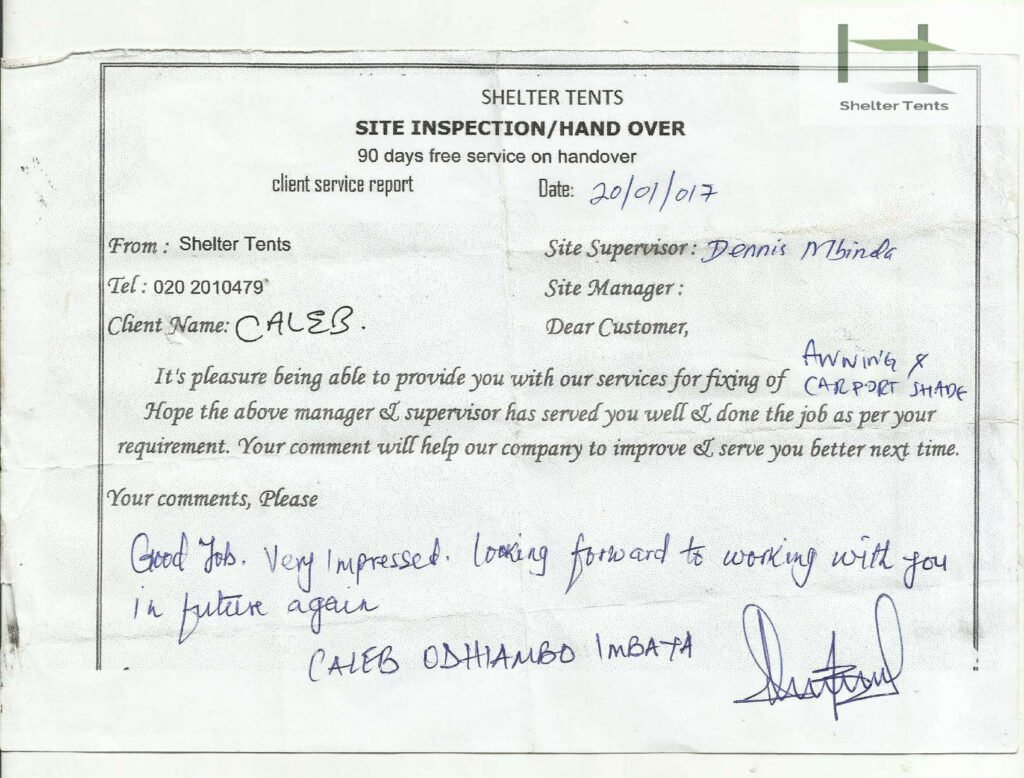 Shelter Tents
SHELTER TENTS
SITE INSPECTION/HAND OVER
90 days free service on handover
client service report Date: 20/01/017
From : Shelter Tents Site Supervisor : Dennis Mbinda
Tel : 020 2010479 Site Manager :
Client Name: CALEB. Dear Customer,
It's pleasure being able to provide you with our services for fixing of AWNING & CARPORT SHADE
Hope the above manager & supervisor has served you well & done the job as per your
requirement. Your comment will help our company to improve & serve you better next time.
Your comments, Please
Good Job. Very Impressed. looking forward to working with you
in future again
CALEB ODHIAMBO IMBAYA